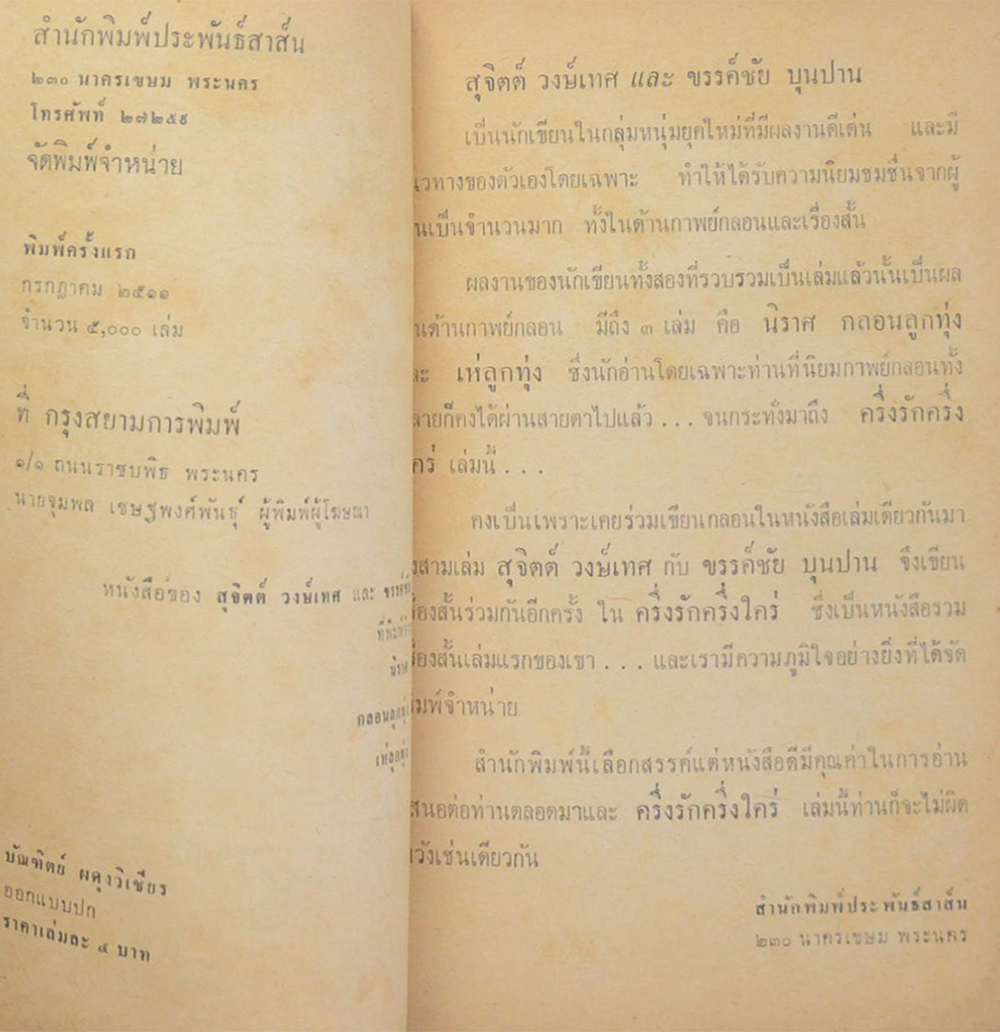 สำนักพิมพ์ประพันธ์สาส์น
๒๓๐ นาครเขษม พระนคร
โทรศัพท์ ๒๗๒๕๙
จัดพิมพ์จำหน่าย
พิมพ์ครั้งแรก
กรกฎาคม ๒๕๑๑
จำนวน ๕,๐๐๐ เล่ม
ที่ กรุงสยามการพิมพ์
๑/๑ ถนนราชบพิธ พระนคร
นายจุมพล เชษฐพงศ์พันธุ์ ผู้พิมพ์ผู้โฆษณา
หนังสือของ สุจิตต์ วงษ์เทศ และ ขรรค์ชั
ที่พิมพ์
นิราศ
กลอนลูกทุ่ง
เห่ลูกทุ่ง
บัณฑิตย์ ผดุงวิเชียร
ออกแบบปก
ราคาเล่มละ ๔ บาท
สุจิตต์ วงษ์เทศ และ ขรรค์ชัย บุนปาน
เป็นนักเขียนในกลุ่มหนุ่มยุคใหม่ที่มีผลงานดีเด่น และมี
นวทางของตัวเองโดยเฉพาะ ทำให้ได้รับความนิยมชมชื่นจากผู้
นเป็นจำนวนมาก ทั้งในด้านกาพย์กลอนและเรื่องสั้น
ผลงานของนักเขียนทั้งสองที่รวบรวมเป็นเล่มแล้วนั้นเป็นผล
นด้านกาพย์กลอน มีถึง ๓ เล่ม คือ นิราศ กลอนลูกทุ่ง
ละ เห่ลูกทุ่ง ซึ่งนักอ่านโดยเฉพาะท่านที่นิยมกาพย์กลอนทั้ง
ลายก็คงได้ผ่านสายตาไปแล้ว . . . จนกระทั่งมาถึง ครึ่งรักครึ่ง
คร่ เล่มนี้ . . .
คงเป็นเพราะเคยร่วมเขียนกลอนในหนังสือเล่มเดียวกันมา
งสามเล่ม สุจิตต์ วงษ์เทศ กับ ขรรค์ชัย บุนปาน จึงเขียน
ื่องสั้นร่วมกันอีกครั้ง ใน ครึ่งรักครึ่งใคร่ ซึ่งเป็นหนังสือรวม
ื่องสั้นเล่มแรกของเขา . . . และเรามีความภูมิใจอย่างยิ่งที่ได้จัด
ิมพ์จำหน่าย
สำนักพิมพ์นี้เลือกสรรค์แต่หนังสือดีมีคุณค่าในการอ่าน
สนอต่อท่านตลอดมาและ ครึ่งรักครึ่งใคร่ เล่มนี้ท่านก็จะไม่ผิด
วังเช่นเดียวกัน
สำนักพิมพ์ประพันธ์สาส์น
๒๓๐ นาครเขษม พระนคร